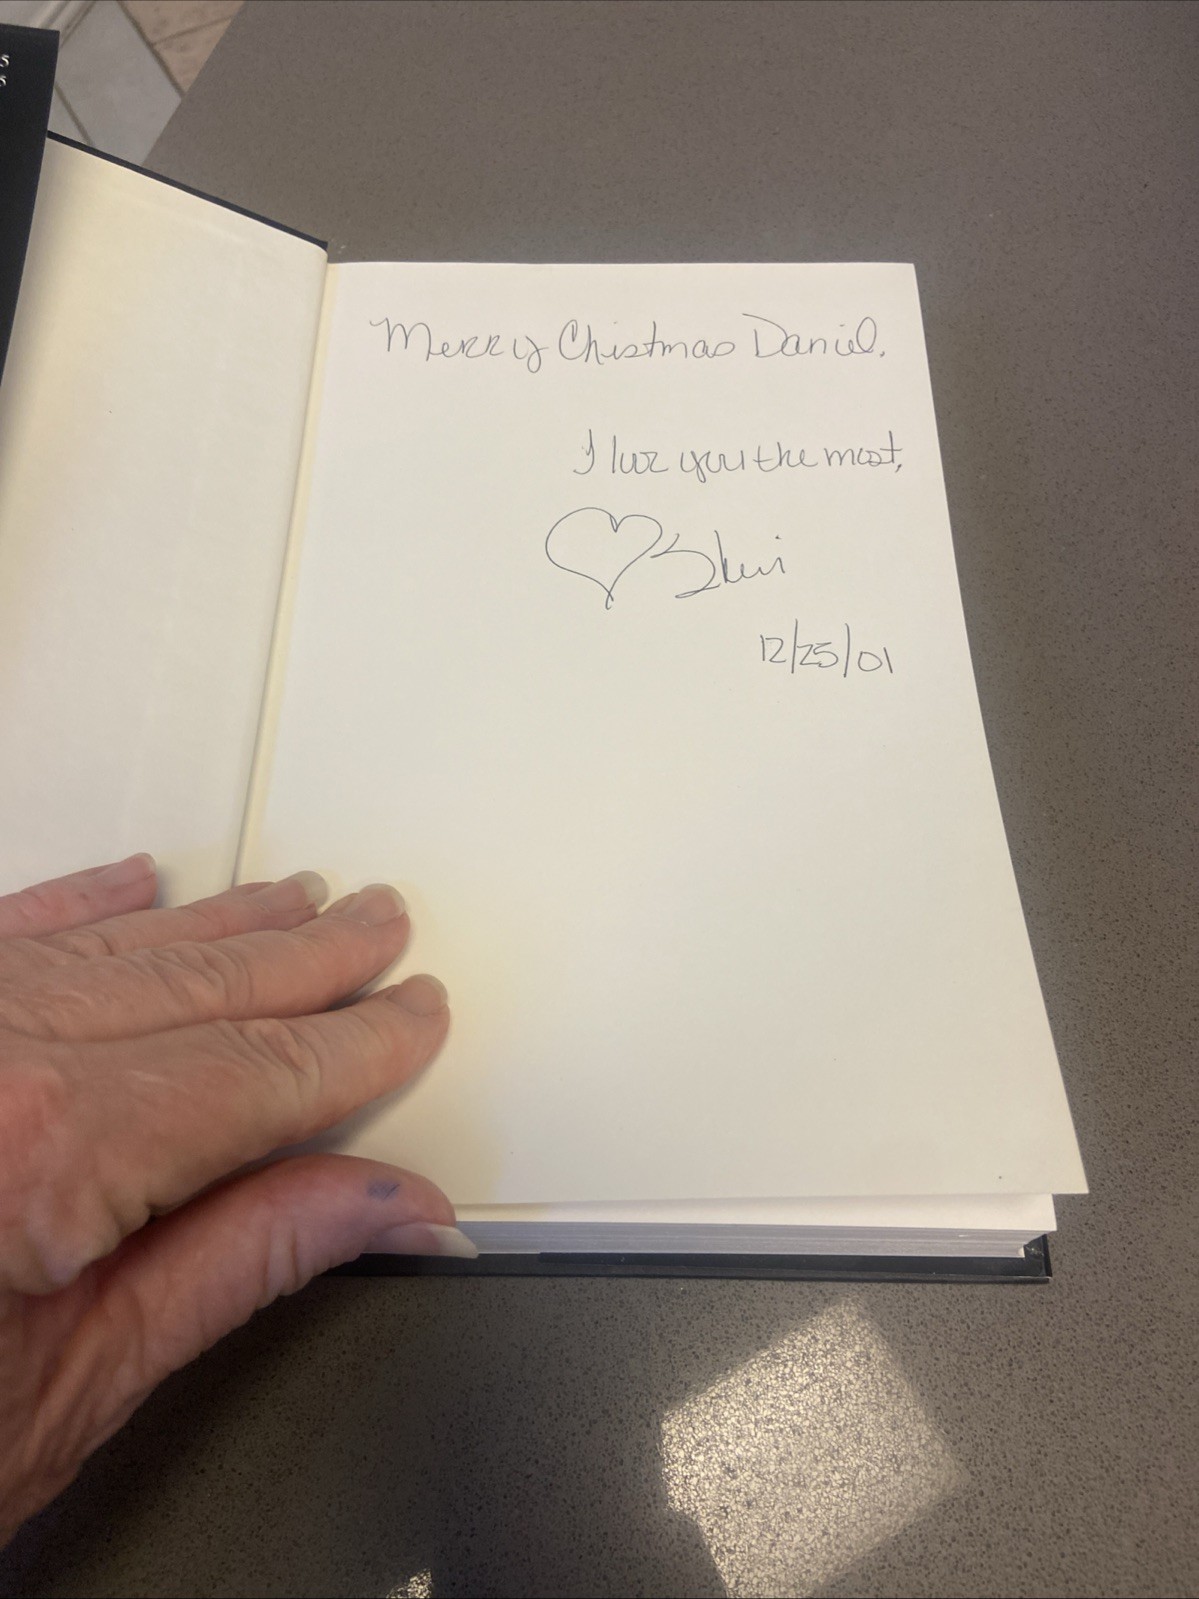 Merry Chistmas Daniel.
I luv you the most,
12/25/01